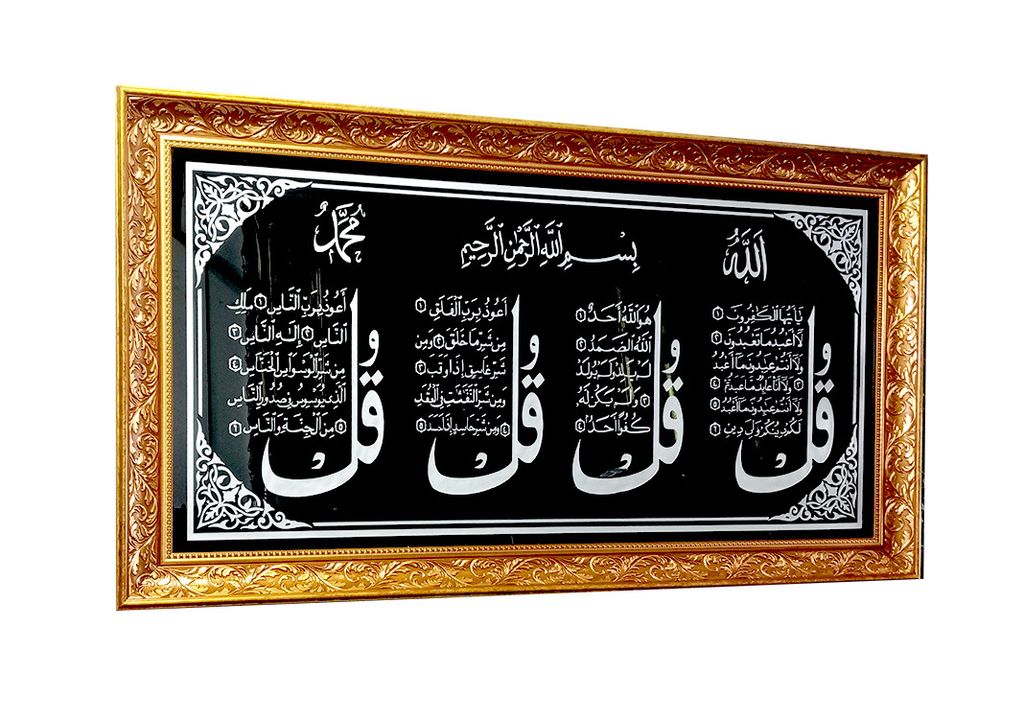 اَللّٰهُ
بِسْمِ ٱللَّهِ ٱلرَّحْمَٰنِ ٱلرَّحِيمِ
مُحَمَّدٌ
قُلْ
يَا أَيُّهَا الْكَافِرُونَ ١
لَا أَعْبُدُ مَا تَعْبُدُونَ ٢
وَلَا أَنْتُمْ عَابِدُونَ مَا أَعْبُدُ
٣ وَلَا أَنَا عَابِدٌ مَا عَبَدْتُمْ ٤
وَلَا أَنْتُمْ عَابِدُونَ مَا أَعْبُدُ ٥
لَكُمْ دِينُكُمْ وَلِيَ دِينِ ٦
قُلْ
هُوَ اللَّهُ أَحَدٌ ١
اللَّهُ الصَّمَدُ ٢
لَمْ يَلِدْ وَلَمْ يُولَدْ
٣ وَلَمْ يَكُنْ لَهُ
كُفُوًا أَحَدٌ ٤
قُلْ
أَعُوذُ بِرَبِّ الْفَلَقِ ١
مِنْ شَرِّ مَا خَلَقَ ٢ وَمِنْ
شَرِّ غَاسِقٍ إِذَا وَقَبَ ٣
وَمِنْ شَرِّ النَّفَّٰثَٰتِ فِي الْعُقَدِ
٤ وَمِنْ شَرِّ حَاسِدٍ إِذَا حَسَدَ ٥
قُلْ
أَعُوذُ بِرَبِّ النَّاسِ ١ مَلِكِ
النَّاسِ ٢ إِلَٰهِ النَّاسِ ٣
مِنْ شَرِّ الْوَسْوَاسِ الْخَنَّاسِ ٤
الَّذِي يُوَسْوِسُ فِي صُدُورِ النَّاسِ
٥ مِنَ الْجِنَّةِ وَالنَّاسِ ٦